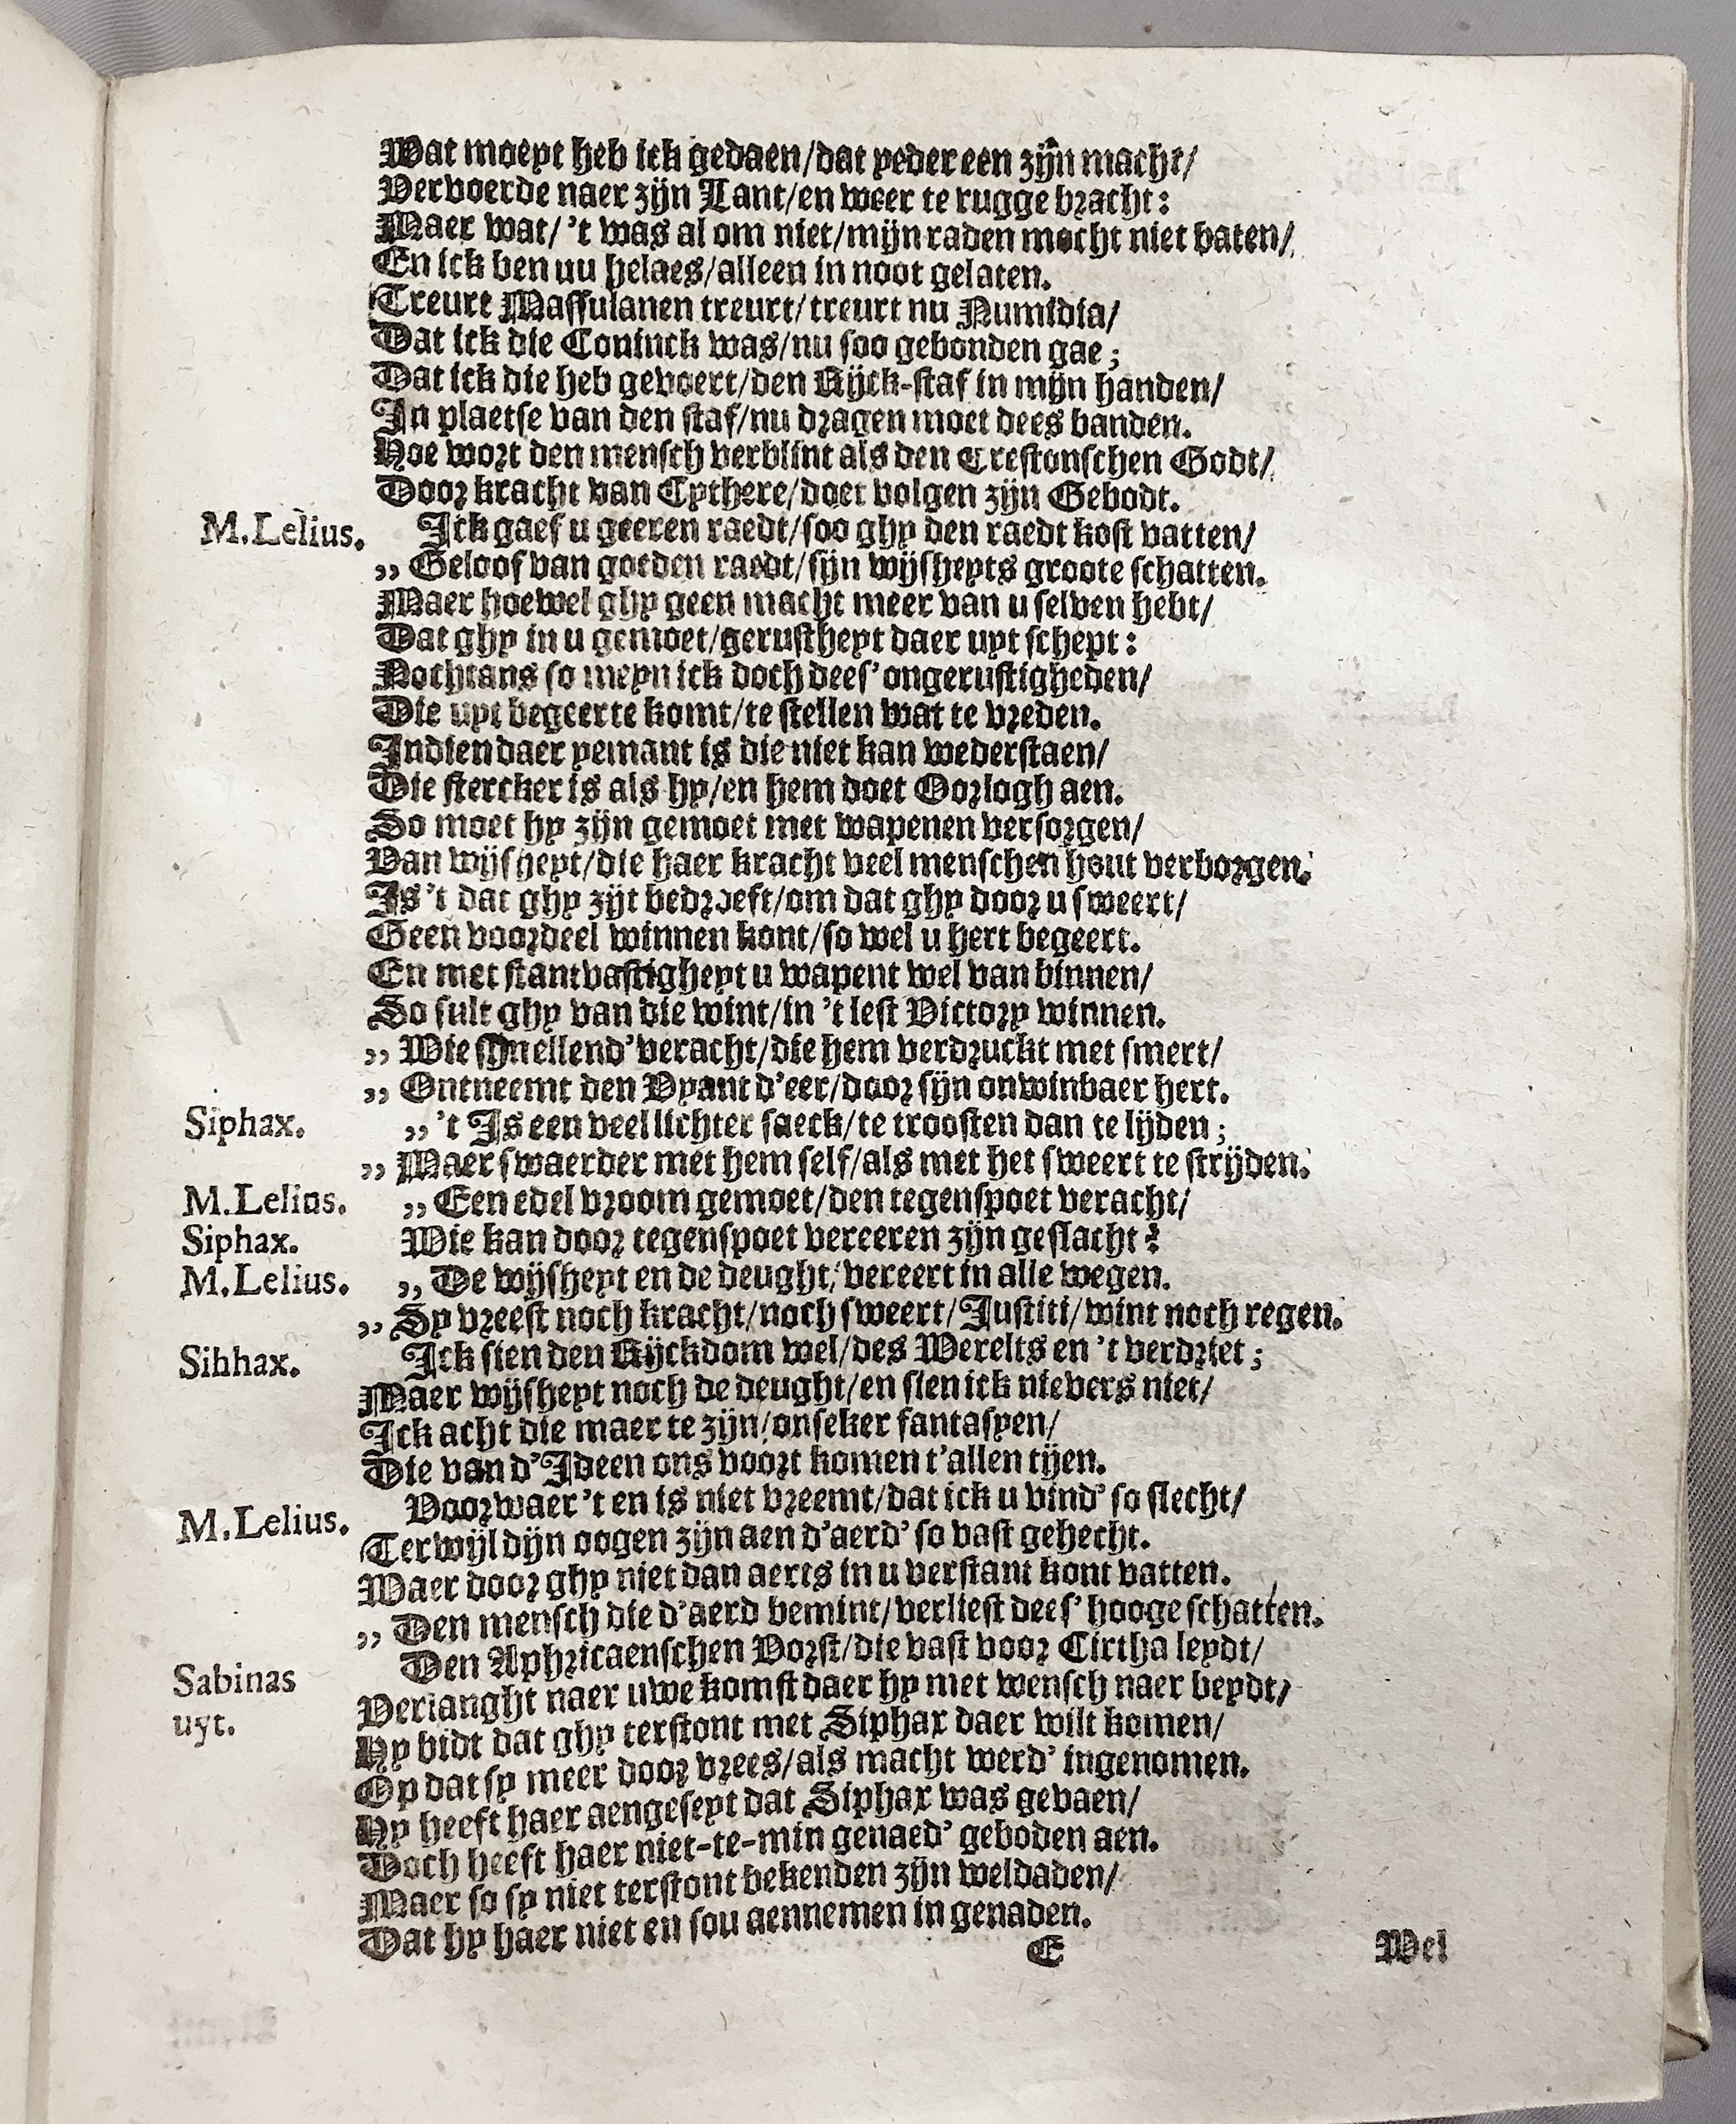 Wat moeyt heb ick gedaen/dat yeder een zijn macht/
Vervoerde naer zijn Lant/en weer te rugge bracht:
Maer wat/ 't was al om niet/mijn raden mocht niet baten/
En ick ben nu helaes/alleen in noot gelaten.
Treurt Massulanen treurt/treurt nu Numidia/
Dat ick die Coninck was/nu soo gebonden gae;
Dat ick die heb gevoert/den Rijck-staf in mijn handen/
In plaetse van den staf/nu dragen moet dees banden.
Hoe wort den mensch verblint als den Crestonschen Godt/
Door kracht van Cythere/doet volgen zijn Gebodt.
M.Lelius. Ick gaef u geeren raedt/soo ghy den raedt kost vatten/
,, Geloof van goeden raedt/sijn wijsheyts groote schatten.
Maer hoewel ghy geen macht meer van u selven hebt/
Dat ghy in u gemoet/gerustheyt daer uyt schept:
Nochtans so meyn ick doch dees' ongerustigheden/
Die uyt begeerte komt/te stellen wat te vreden.
Indien daer yemant is die niet kan wederstaen/
Die stercker is als hy/en hem doet Oorlogh aen.
So moet hy zijn gemoet met wapenen versorgen/
Van wijsheyt/die haer kracht veel menschen hout verborgen.
Is 't dat ghy zijt bedroeft/om dat ghy door u sweert/
Geen voordeel winnen kont/so wel u hert begeert.
En met stantvastigheyt u wapent wel van binnen/
So sult ghy van die wint/in 't lest Victory winnen.
,, Wie sijn ellend' veracht/die hem verdruckt met smert/
,, Ontneemt den Vyant d'eer/door sijn onwinbaer hert.
Siphax. ,, 't Is een veel lichter saeck/te troosten dan te lijden;
,, Maer swaerder met hem self/als met het sweert te strijden.
M.Lelius. ,, Een edel vroom gemoet/den tegenspoet veracht/
Siphax. Wie kan door tegenspoet vereeren zijn geslacht?
M.Lelius. ,, De wijsheyt en de deught/vereert in alle wegen.
,, Sy vreest noch kracht/noch sweert/Justiti/wint noch regen.
Sihhax. Ick sien den Rijckdom wel/des Werelts en 't verdriet;
Maer wijsheyt noch de deught/en sien ick nievers niet/
Ick acht die maer te zijn/onseker fantasyen/
Die van d'Ideen ons voort komen t'allen tijen.
M.Lelius. Voorwaer 't en is niet vreemt/dat ick u vind' so slecht/
Terwijl dijn oogen zijn aen d'aerd' so vast gehecht.
Waer door ghy niet dan aerts in u verstant kont vatten.
,, Den mensch die d'aerd bemint/verliest dees' hooge schatten.
Sabinas uyt. Den Aphricaenschen Vorst/die vast voor Cirtha leydt/
Verlanght naer uwe komst daer hy met wensch naer beydt/
Hy bidt dat ghy terstont met Siphax daer wilt komen/
Op dat sy meer door vrees/als macht werd' ingenomen.
Hy heeft haer aengeseyt dat Siphax was gevaen/
Doch heeft haer niet-te-min genaed' geboden aen.
Maer so sy niet terstont bekenden zijn weldaden/
Dat hy haer niet en sou aennemen in genaden.
E Wel